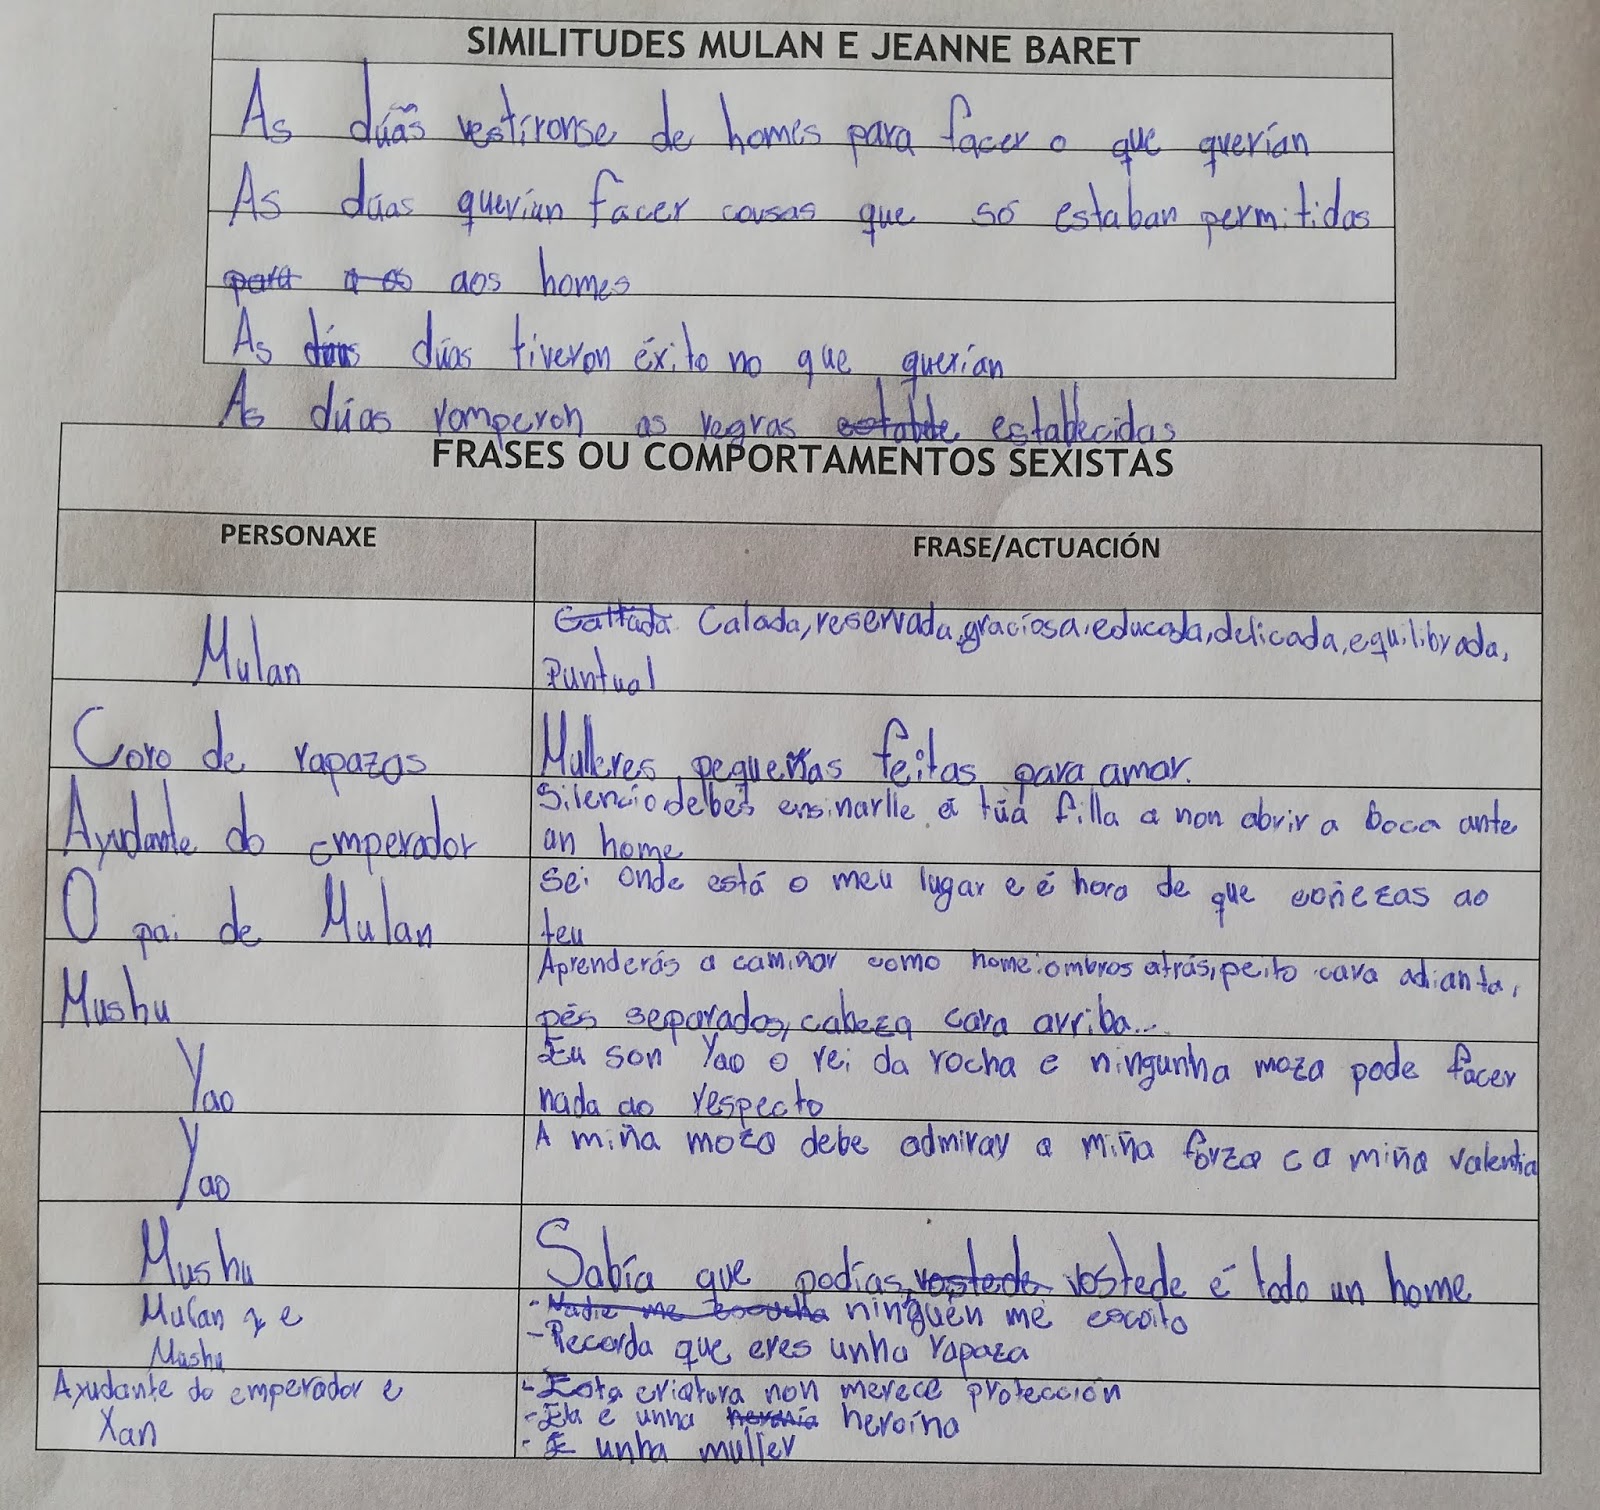 SIMILITUDES MULAN E JEANNE BARET
As dúas vestironse de homes para facer o que querían
As dúas querían facer cousas que só estaban permitidas
para a os aos homes
As dúas dúas tiveron éxito no que querían
As dúas romperon as regras establecidas
FRASES OU COMPORTAMENTOS SEXISTAS
PERSONAXE FRASE/ACTUACIÓN
Mulan
Calada, reservada, graciosa, educada, delicada, equilibrada,
Puntual
Coro de rapazas
Mulleres pequeñas feitas para amar.
Ayudante do emperador
Silencio debes ensinarlle á túa filla a non abrir a boca ante
un home
O pai de Mulan
Sei onde está o meu lugar e é hora de que coñezas ao
teu
Mushu
Aprenderás a camiñar como home: ombros atrás, peito cara adianta,
pés separados, cabeza cara arriba...
Yao
Eu son Yao o rei da rocha e ningunha moza pode facer
nada ao respecto
Yao
A miña moza debe admirar a miña forza e a miña valentia
Mushu
Sabía que podías, vostede vostede é todo un home
Mulan e
Mushu
-Nadie me escucha ninguén me escoito
-Recorda que eres unha rapaza
Ayudante do emperador e
Xan
-Esta criatura non merece protección
-Ela é unha heroína
-É unha muller